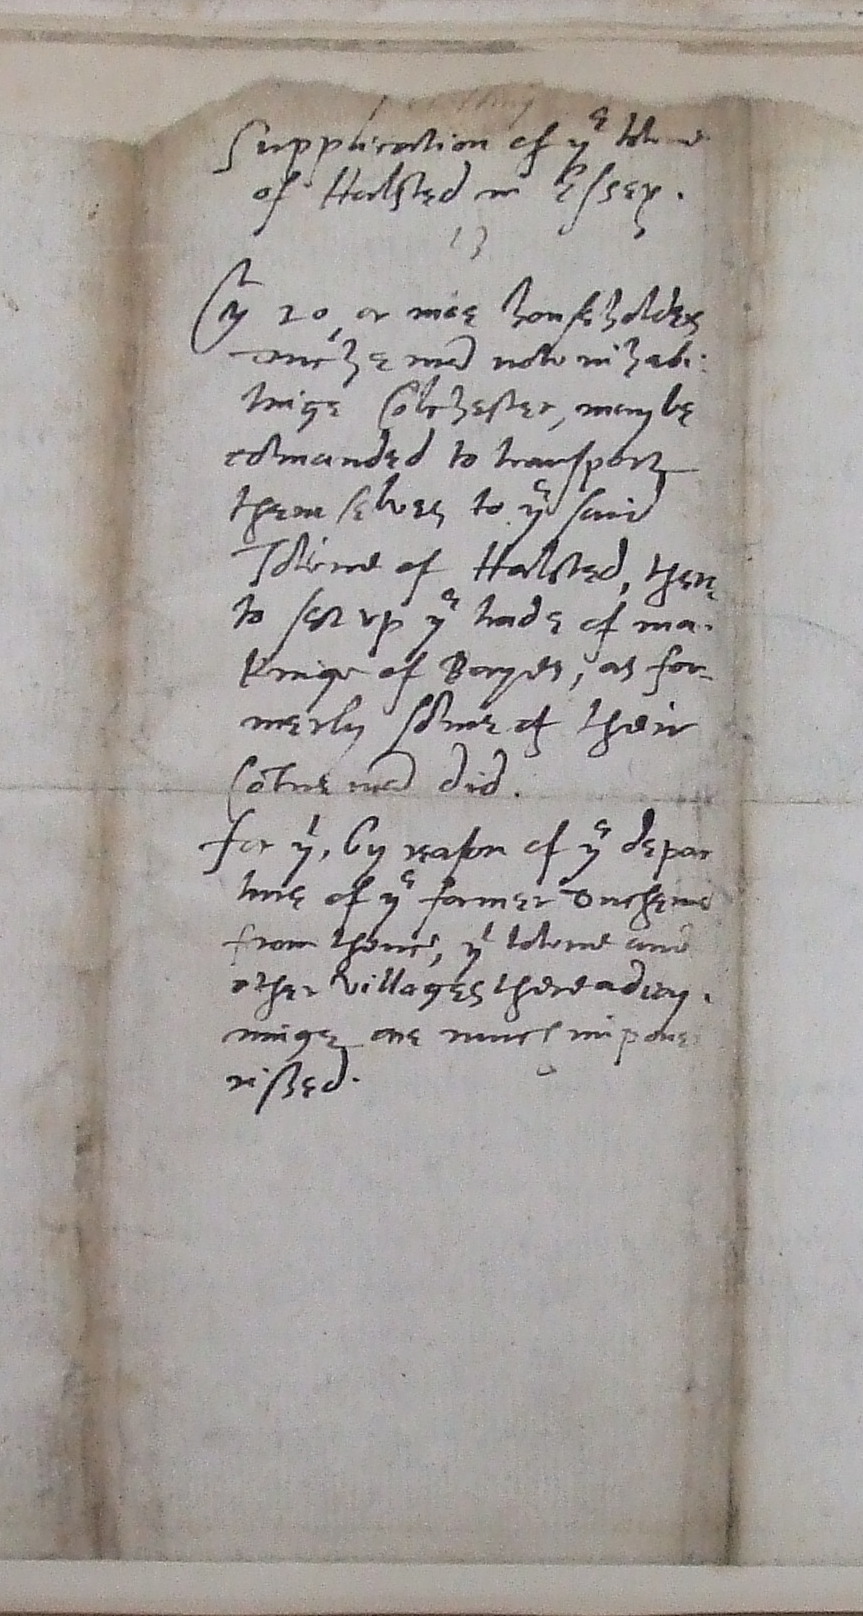 Supplication of yᵉ towne
of Halsted in Essex.
13
yᵗ 20, or more householders
Duchemen now inhabi:
tinge Colchester, may be
comanded to transport
themselves to yᵉ said
Towne of Halsted, there
to set up yᵉ trade of ma-
kinge of Bayes, as for-
merly some of their
Cotriemen did.
for yᵗ, by reason of yᵉ depar
ture of yᵉ former Duchemen
from thence, yᵗ towne and
other villages there adioy-
ninge are much impove
rished.